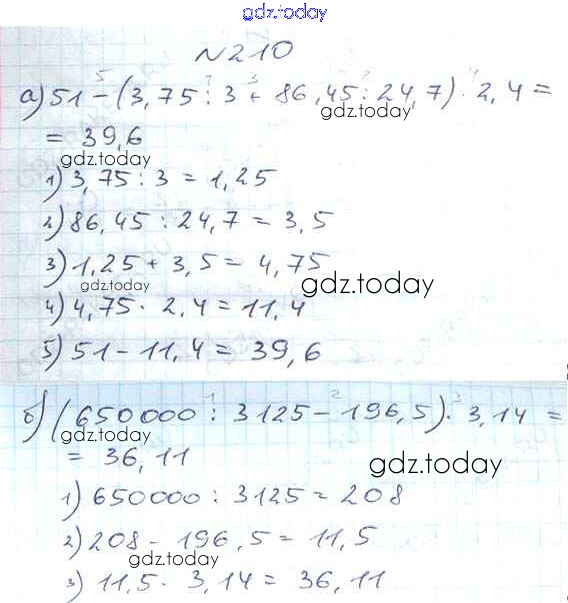 gdz.today
N 210
а) 51 - (3,75 : 3 + 86,45 : 24,7) · 2,4 =
gdz.today
= 39,6
gdz.today
1) 3,75 : 3 = 1,25
2) 86,45 : 24,7 = 3,5
3) 1,25 + 3,5 = 4,75
gdz.today gdz.today
4) 4,75 · 2,4 = 11,4
5) 51 - 11,4 = 39,6
б) (650000 : 3125 - 196,5) · 3,14 =
gdz.today
= 36,11
gdz.today
1) 650000 : 3125 = 208
2) 208 - 196,5 = 11,5
gdz.today
3) 11,5 · 3,14 = 36,11